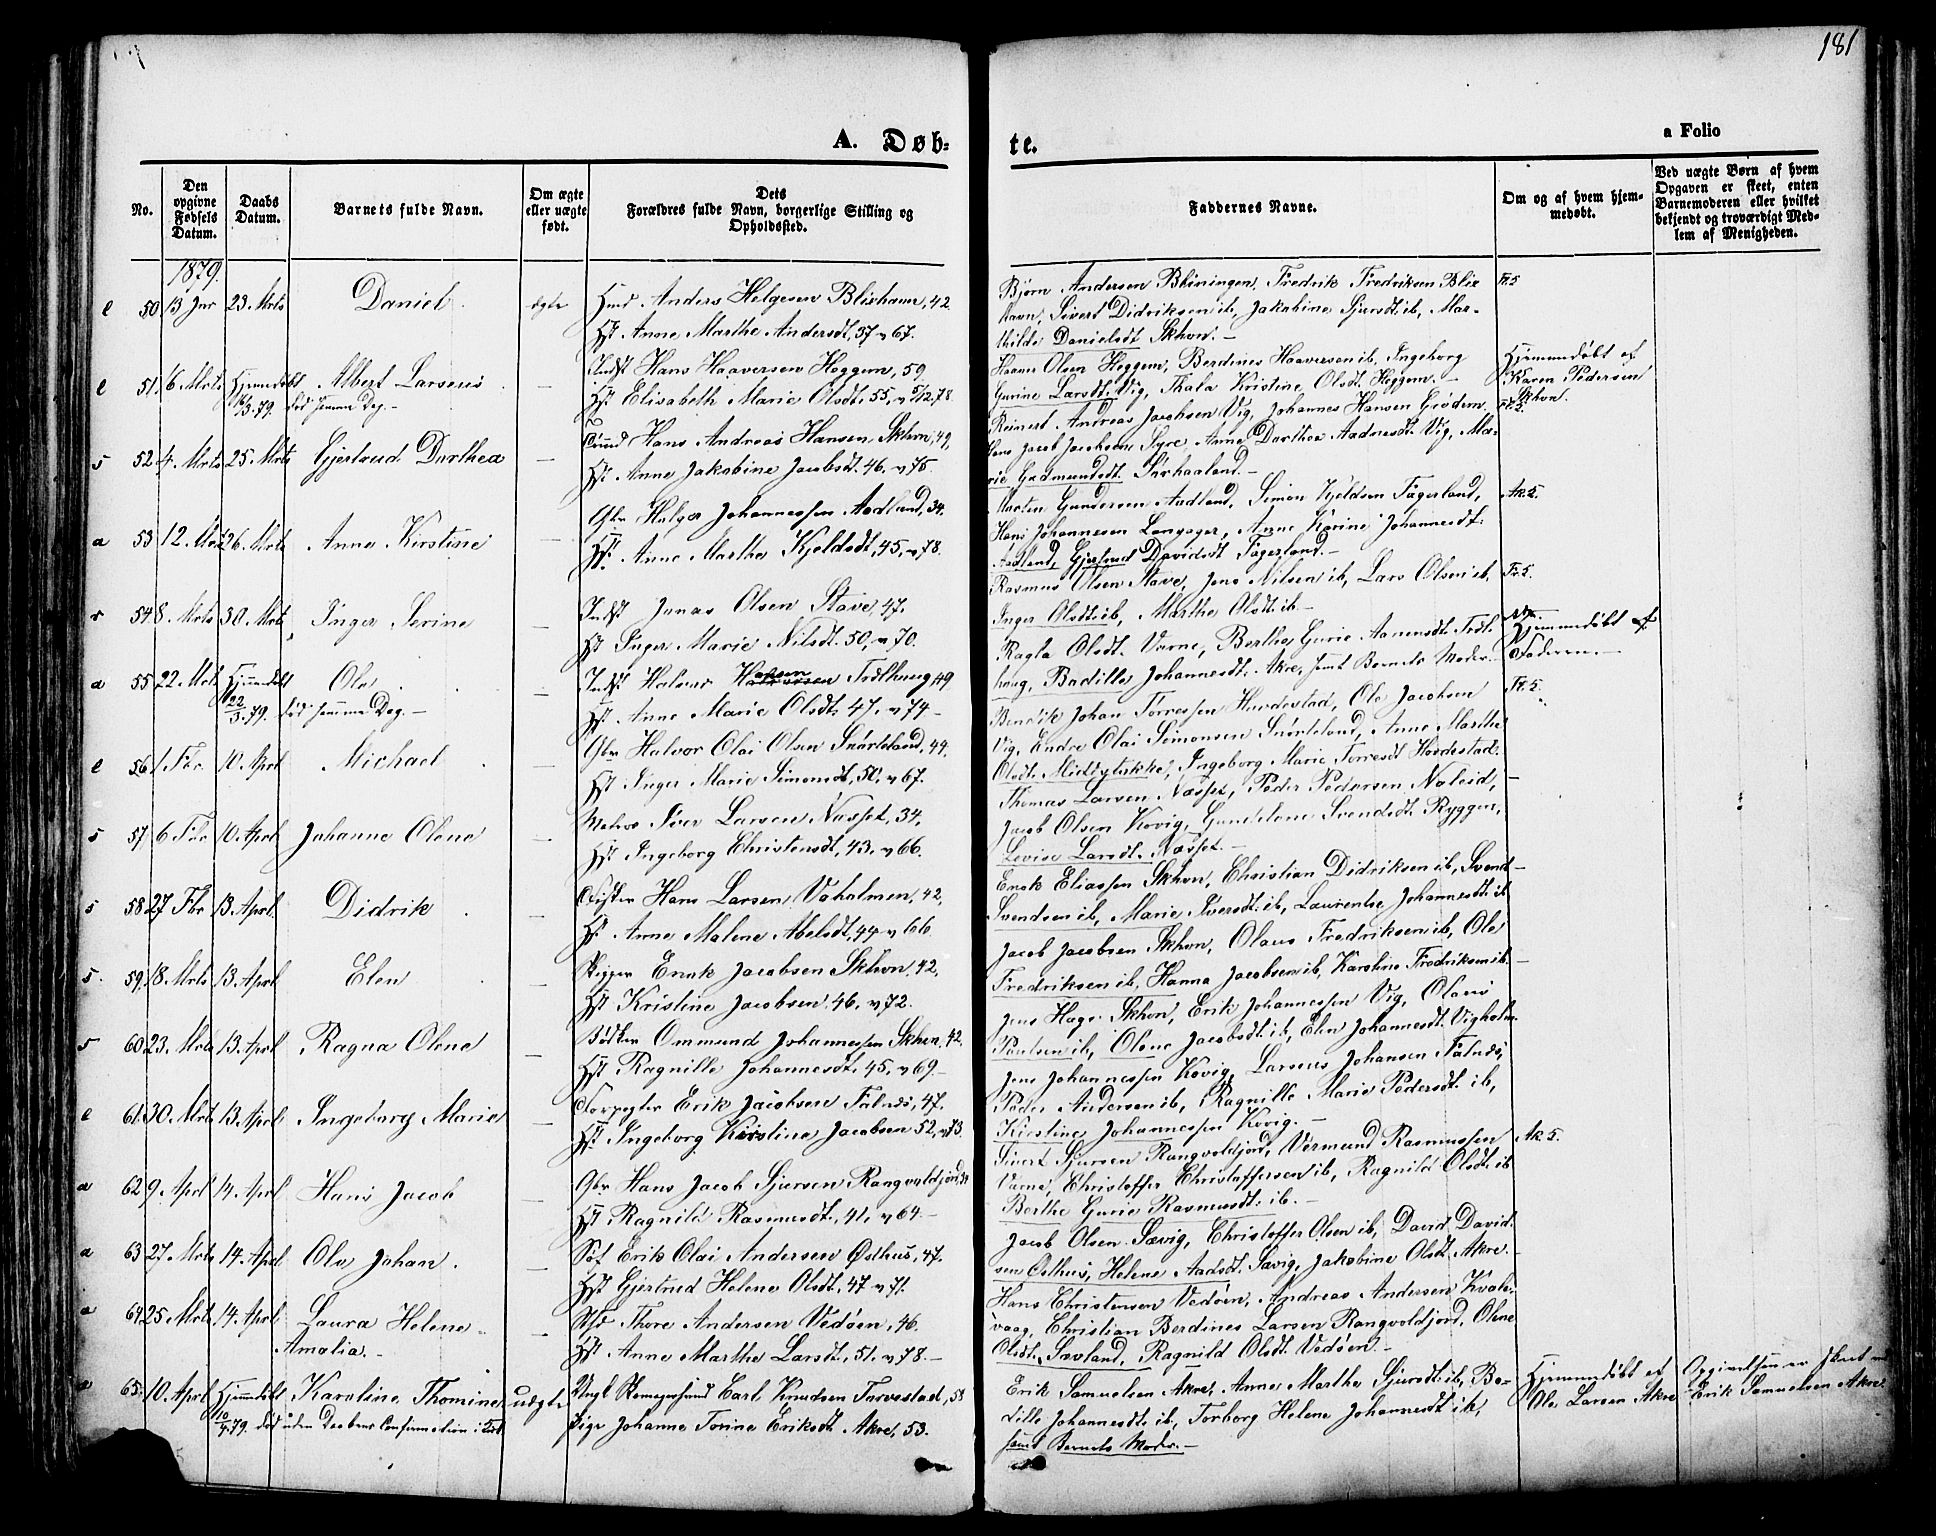 181
A. Døb-
te.
a Folio
No.
Den opgivne Fødsels Datum.
Daabs Datum.
Barnets fulde Navn.
Om ægte eller uægte født.
Dets Forældres fulde Navn, borgerlige Stilling og Opholdssted.
Faddernes Navne.
Om og af hvem hjemmedøbt.
Ved uægte Børn af hvem Opgaven er skeet, enten Barnemoderen eller hvilket bekjendt og troværdigt Medlem af Menigheden.
1879.
50 13 Jnr 23. Mrts Daniel ægte Anders Helgesen Blixhavn, 42.
Hst Anne Marthe Andersdt, 37 v 67.
Bjørn Andersen Fredrik Fredriksen Blix
havn, Sivert Didriksen ib, Jakobine Sjursdt ib, Mar-
thilde Danielsdt Skhvn.-
51 16 Mrts Hjemmedøbt 16/3.79. død samme Dag.- Albert Larsens Hans Haaversen Heggem, 59
Hst Elisabeth Marie Olsdt, 55, v 5/12.78.
Haaver Olsen Heggem, Berdines Haaversen ib, Ingeborg
Gurine Larsdt Vig, Thala Kristine Olsdt Heggem.-
Hjemmedøbt af Karen Pedersen Skhvn.
52 4. Mrts 25. Mrts Gjertrud Dorthea Hans Andreas Hansen Skhvn, 49,
Hst Anne Jakobine Jacobsdt. 46. v 75.
Reinert Andreas Jacobsen Vig, Johannes Hansen Grødem,
Hans Jacob Jacobsen Syre Anne Dorthea Aadnesdt. Vig, Ma-
rie Gudmundsdt.
53 12. Mrts 26. Mrts Anna Kirstine Gbr Helger Johannessen Aadland, 34.
Hst. Anne Marthe Kjeldsdt, 45, v 78.
Morten Gundersen Aadland, Simon Kjeldsen Fagerland,
Hans Johannesen Langager, Anne Karine Johannesdt.
Aadland, Gjertrud Davidsdt Fagerland.-
54 8. Mrts 30. Mrts Inger Serine Indst Jonas Olsen Stave, 47.
Hst Inger Marie Nilsdt. 50, v 70.
Rasmus Olsen Stave, Jens Nilsen ib, Lars Olsen ib,
Inger Olsdt ib, Marthe Olsdt ib.-
55 22. Mrts Hjemmedøbt 22/3.79. død samme Dag.- Ole Indst Halvor Hansen 49
Hst. Anne Marie Olsdt. 47, v 74-
Ragla Olsdt. Varne, Berthe Gurie
haug, Badille Johannesdt. Akre, samt Barnets Moder.-
Hjemmedøbt af Faderen.-
56 1. Fbr 10. Aprl Michael Gbr Halvor Olai Olsen 44.
Hst Inger Marie Simonsdt, 50, v 67.
Bendik Johan Torressen Hordestad, Ole Jacobsen
Vig, Endre Olai Simonsen Anne Marthe
Olsdt. Ingeborg Marie Torresdt Hordestad.
57 6 Fbr 10. Aprl Johanne Olene Iver Larsen Næsset, 34.
Hst Ingeborg Christensdt, 43, v 66.
Thomas Larsen Næsset, Peder Pedersen
Jacob Olsen Kovig, Gundelene Svendsdt Ryggen,
Levise Larsdt. Næsset.-
58 27 Fbr 13. Aprl Didrik Hans Larsen Vaholmen, 42,
Hst Anne Malene Abelsdt, 44 v 66.
Enok Eliassen Skhvn, Christian Didriksen ib, Svend
Svendsen ib, Marie Iversdt. ib, Laurentse Johannesdt ib.
59 18. Mrts 13. Aprl Elen Skipper Enok Jacobsen Skhvn, 42,
Hst Kristine Jacobsen 46. v 72.
Jacob Jacobsen Skhvn, Olaus Fredriksen ib, Ole
Fredriksen ib, Hanna Jacobsen ib, Karoline Fredriksen ib.-
60 23. Mrts 13. Aprl Ragna Olene Bødker Ommund Johannessen Skhvn. 42.
Hst Ragnille Johannesdt, 45, v 69.-
Jens Hage Skhvn, Erik Johannessen Vig, Olaus
Paulsen ib, Olene Jacobsdt ib, Elen Johannesdt. Vigholm.
61 30. Mrts 13. Aprl Ingeborg Marie Forpagter Erik Jacobsen Falnæs, 47.
Hst. Ingeborg Kirstine Jacobsen 52, v 73.
Jens Johannessen Kovig, Larsens Johansen Falnæs,
Peder Andersen ib, Ragnille Marie Pedersdt. ib,
Kirstine Johannessen Kovig.-
62 9. Aprl 14. Aprl Hans Jacob Gbr Hans Jacob Sjursen Rangvoldjord
Hst Ragnild Rasmusdt, 41, v 64.-
Sivert Sjursen Rangvoldjord, Vermund Rasmussen
Varne, Christoffer Christoffersen ib, Ragnild Olsdt. ib
Berthe Gurie Rasmusdt. ib.-
63 27. Mrts 14. Aprl Ole Johan. Erik Olai Andersen Østhus, 47.
Hst Gjertrud Helene Olsdt, 47 v 71.
Jacob Olsen Sævig, Christoffer Olsen ib, David David-
sen Østhus, Helene Aadsdt. Sævig, Jakobine Olsdt. Akre.-
64 25. Mrts 14. Aprl Laura Helene Amalia.- Thore Andersen Vedøen, 46.
Hst. Anne Marthe Larsdt, 51. v 78.-
Hans Christensen Vedøen, Andreas Andersen Kvale-
vaag, Christian Berdines Larsen Rangvoldjord, Olene
Olsdt. Sævland, Ragnild Olsdt. Vedøen.-
65 10. Aprl Hjemmedøbt 10/4.79. død uden Daabens Confirmation i Kirk Karoline Thomine uægte Ungk Carl Knudsen Torvestad, 53
Pige Johanne Tonine Eriksdt Akre, 53.
Erik Samuelsen Akre, Anne Marthe Sjursdt ib, Bo-
dille Johannesdt. ib, Torborg Helene Johannesdt ib,
samt Barnets Moder.-
Hjemmedøbt af Ole Larsen Akre
Opgivelsen er skeet Erik Samuelsen Akre.